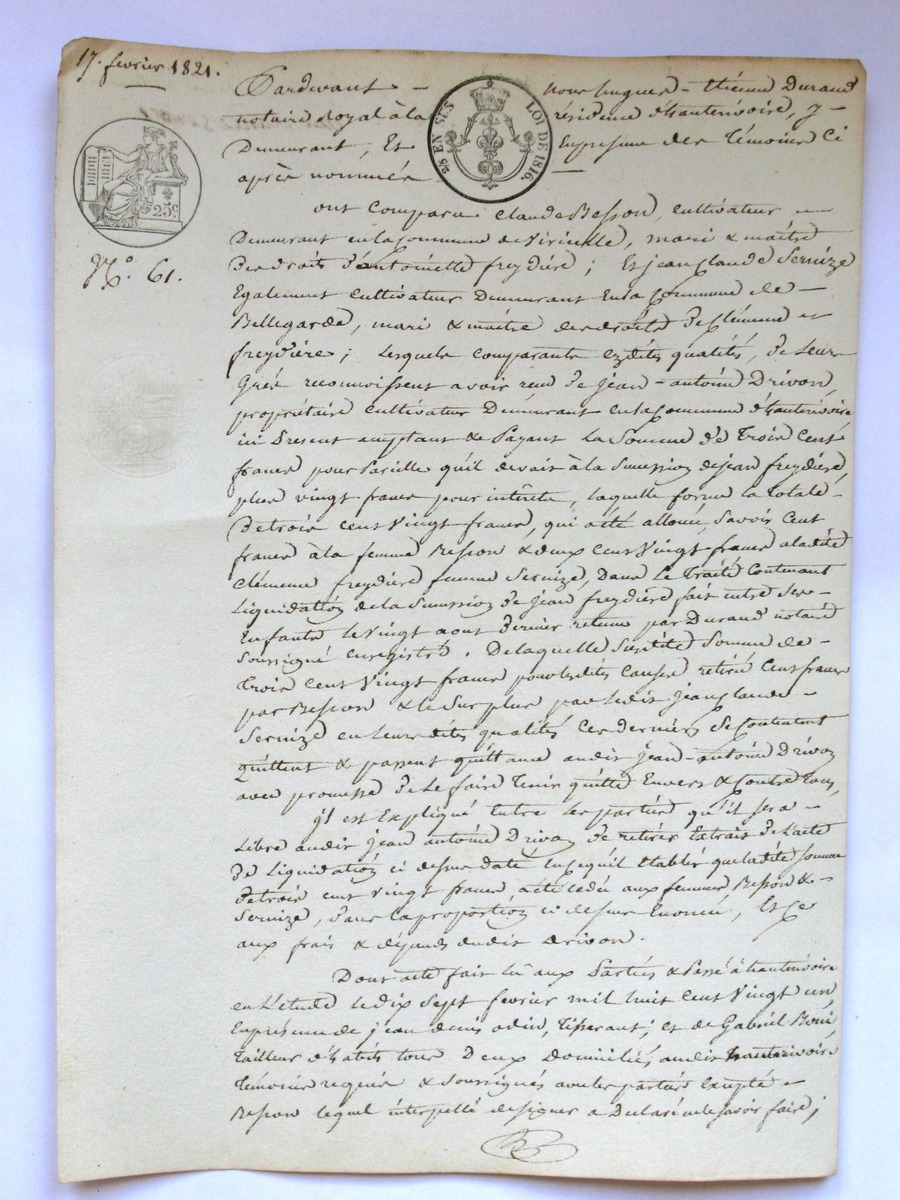 17. fevrier 1821.
Pardevant - nous hugues - Etienne Durand
notaire Royal à la résidence d'hauterivoire, y -
Demeurant, Et En presence des Témoins Ci
après nommés
28 EN SUS LOI DE 1816.
25c.
No. 61.
ont Comparu Claude Besson, Cultivateur -
Demeurant en la Commune de Viricelle, mari & maître
des droits d'antoinette freydière; Et jean Claude Servize
Egalement Cultivateur Demeurant En la Commune de -
Bellegarde, mari & maître des droits de Clémence -
freydière; lesquels comparants ezdites qualités, de leur
Gréé reconnoissent avoir recu de jean-antoine Drivon,
propriétaire Cultivateur Demeurant en la Commune d'hauterivoire
ici Present acceptant & Payant la Somme de Trois Cent
francs pour Pareille qu'il devait à la Succession de jean freydière,
plus vingt francs pour intérêts, laquelle forme la totale -
De trois cent Vingt francs, qui a été allouée, Savoir Cent
francs à la femme Besson & deux Cent Vingt francs a la dite
Clémence freydière femme Servize, Dans Le Traité Contenant
Liquidation de la Succession de jean freydière fait entre Ses -
Enfants le Vingt aout dernier retenu par Durand notaire
Soussigné enregistré. De laquelle Susdite Somme de -
Trois Cent Vingt francs pour lesdites Causes retirée Cent francs
par Besson & le Surplus par ledit jean Claude -
Servize en leurs dites qualités Ces derniers Se Contentent
quittent & passent quittance audit jean-antoine Drivon
avec promesse de Le faire Tenir quitte Envers & Contre Tous,
il est Expliqué Entre les parties qu'il sera -
Libre audit jean antoine Drivon de retirer Extrait de l'acte
De Liquidation ci dessus daté En ce qu'il établit que ladite Somme
de trois cent Vingt francs a été cédée aux femmes Besson & -
Servize, dans la proportion ci dessus Enoncée, Et Ce
aux frais & dépends dudit Drivon.
Dont acté fait lu aux Parties & Passé à hauterivoire
en L'étude le dix Sept fevrier mil huit cent Vingt un
En présence de jean denis odin, Tisserant; et de Gabriel
Tailleur d'habits tous Deux domiciliés audit hauterivoire
Témoins requis & Soussignés avec les parties Excepté -
Besson lequel interpellé de signer a Declaré ne le savoir faire;